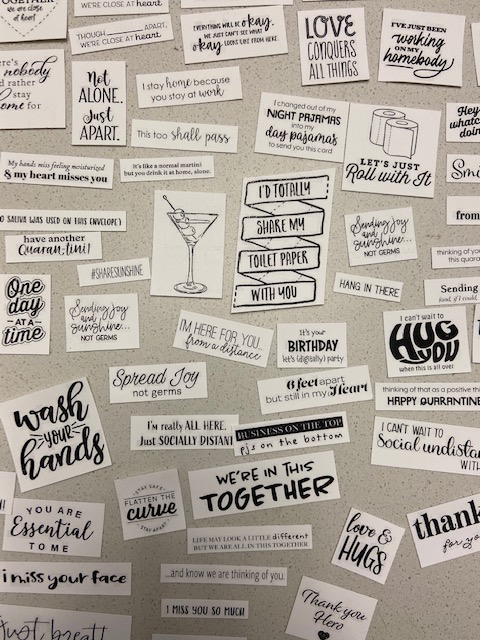 we are close
at heart
WE'RE CLOSE AT heart
THOUGH APART,
WE'RE CLOSE AT heart
EVERYTHING WILL BE okay.
WE JUST CAN'T SEE WHAT
okay LOOKS LIKE FROM HERE.
LOVE
CONQUERS
ALL THINGS
I'VE JUST BEEN
working
ON MY
homebody
nobody
rather
stay
home for
Not
ALONE.
Just
APART.
I stay home because
you stay at work
This too shall pass
I changed out of my
NIGHT PAJAMAS
into my
day pajamas
to send you this card
LET'S JUST
Roll with It
Hey
My hands miss feeling moisturized
& my heart misses you
It's like a normal martini
but you drink it at home, alone.
I'D TOTALLY
SHARE MY
TOILET PAPER
WITH YOU
SALIVA WAS USED ON THIS ENVELOPE)
have another
Quaran-tini!
#SHARESUNSHINE
Sending Joy
and
sunshine...
NOT GERMS
from
thinking of
this
HANG IN THERE
Sending
One
day
AT A
time
Sending Joy
and
sunshine...
NOT GERMS
I'M HERE FOR YOU...
from a distance
It's your
BIRTHDAY
let's (digitally) party
I can't wait to
HUG
YOU
when this is all over
Spread Joy
not germs
6 feet apart
but still in my Heart
thinking of that as a positive
HAPPY QUARANTINE
wash
YOUR
hands
I'm really ALL HERE.
Just SOCIALLY DISTANT
BUSINESS ON THE TOP
pjs on the bottom
I CAN'T WAIT TO
Social undistan
WITH
WE'RE IN THIS
TOGETHER
STAY SAFE
FLATTEN THE
curve
STAY APART
YOU ARE
Essential
TO ME
LIFE MAY LOOK A LITTLE different
BUT WE ARE ALL IN THIS TOGETHER
love &
HUGS
thank
for
i miss your face
...and know we are thinking of you.
I MISS YOU SO MUCH
Thank you
Hero
Just breathe